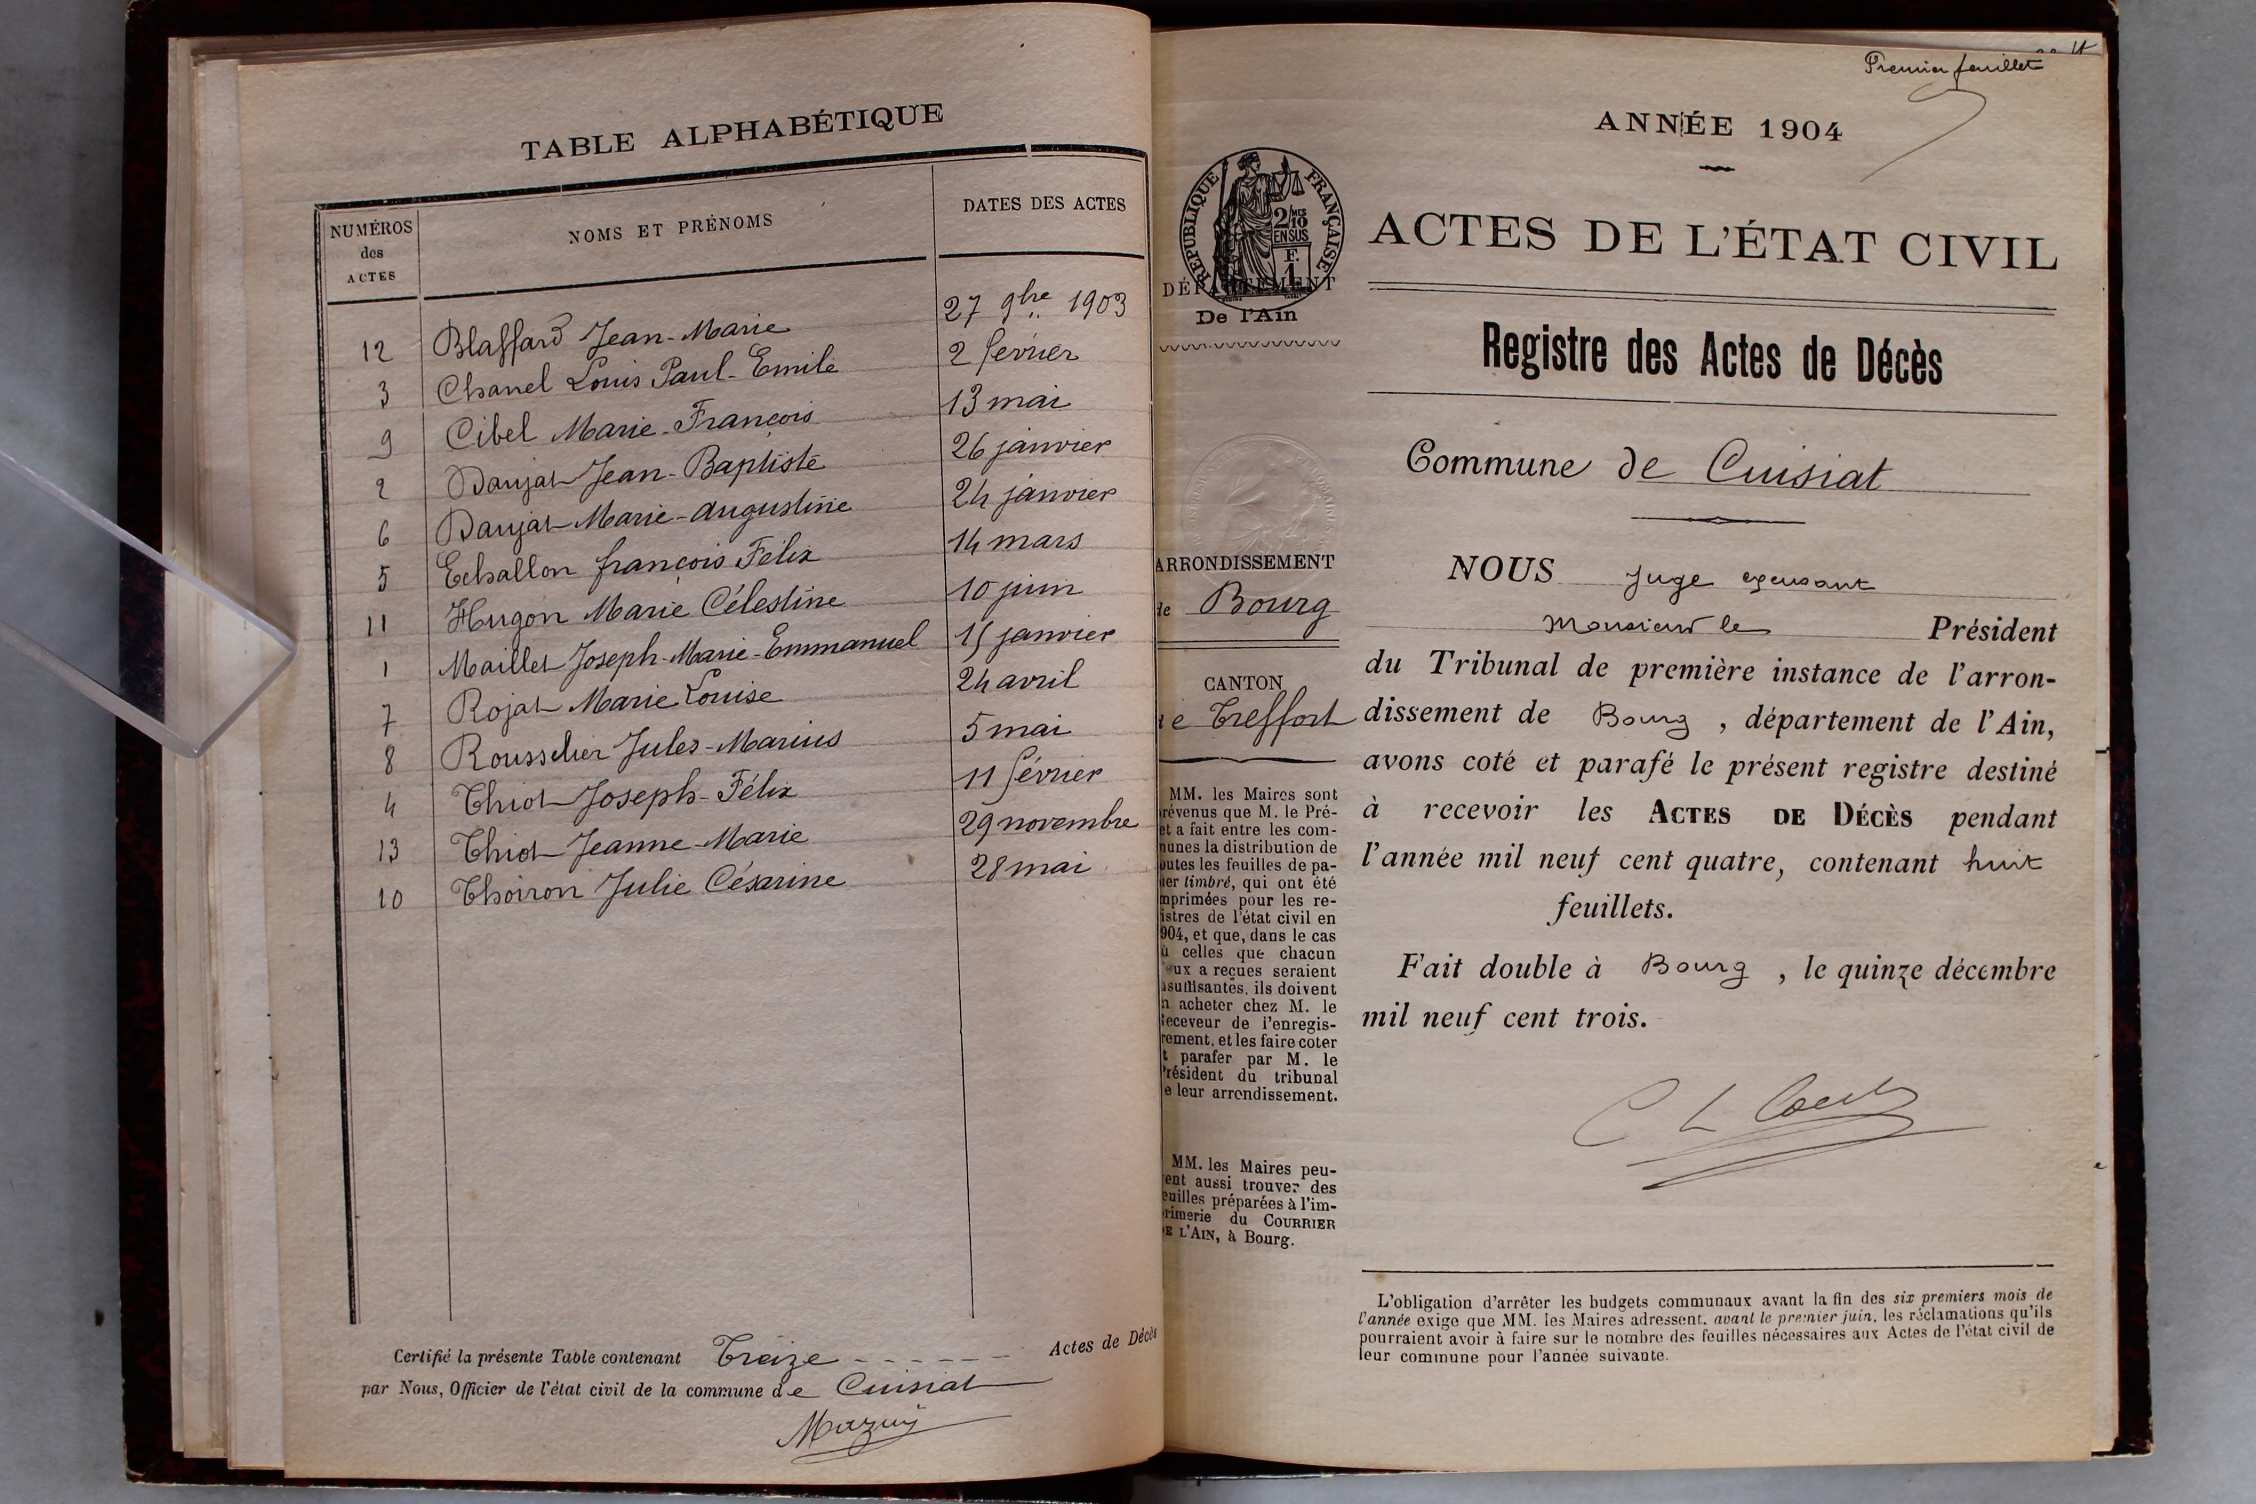 TABLE ALPHABÉTIQUE
NUMÉROS des ACTES NOMS ET PRÉNOMS DATES DES ACTES
12 Blaffard Jean-Marie 27 9bre 1903
3 Chanel Louis Paul-Emile 2 février
9 Cibel Marie-François 13 mai
2 Daujat Jean-Baptiste 26 janvier
6 Daujat Marie-Augustine 24 janvier
5 Echallon françois Félix 14 mars
11 Hugon Marie Célestine 10 juin
1 Maillet Joseph-Marie-Emmanuel 15 janvier
7 Rojat Marie Louise 24 avril
8 Rousselier Jules-Marius 5 mai
4 Thiot Joseph-Félix 11 février
13 Thiot Jeanne-Marie 29 novembre
10 Thoiron Julie Césarine 28 mai
Certifié la présente Table contenant Treize Actes de Décès
par Nous, Officier de l'état civil de la commune de Cuisiat
Mazuy
Premier feuillet
ANNÉE 1904
RÉPUBLIQUE FRANÇAISE
2/10 MES
EN SUS
F.
1
DÉPARTEMENT
De l'Ain
ARRONDISSEMENT
de Bourg
CANTON
de Treffort
MM. les Maires sont
révenus que M. le Pré-
et a fait entre les com-
nunes la distribution de
outes les feuilles de pa-
ier timbré, qui ont été
mprimées pour les re-
istres de l'état civil en
904, et que, dans le cas
ù celles que chacun
'eux a reçues seraient
nsuffisantes, ils doivent
n acheter chez M. le
Receveur de l'enregis-
rement, et les faire coter
t parafer par M. le
Président du tribunal
e leur arrondissement.
MM. les Maires peu-
vent aussi trouver des
euilles préparées à l'im-
rimerie du COURRIER
DE L'AIN, à Bourg.
ACTES DE L'ÉTAT CIVIL
Registre des Actes de Décès
Commune de Cuisiat
NOUS Juge exerçant
Monsieur le Président
du Tribunal de première instance de l'arron-
dissement de Bourg, département de l'Ain,
avons coté et parafé le présent registre destiné
à recevoir les ACTES DE DÉCÈS pendant
l'année mil neuf cent quatre, contenant huit
feuillets.
Fait double à Bourg, le quinze décembre
mil neuf cent trois.
L'obligation d'arrêter les budgets communaux avant la fin des six premiers mois de
l'année exige que MM. les Maires adressent, avant le premier juin, les réclamations qu'ils
pourraient avoir à faire sur le nombre des feuilles nécessaires aux Actes de l'état civil de
leur commune pour l'année suivante.